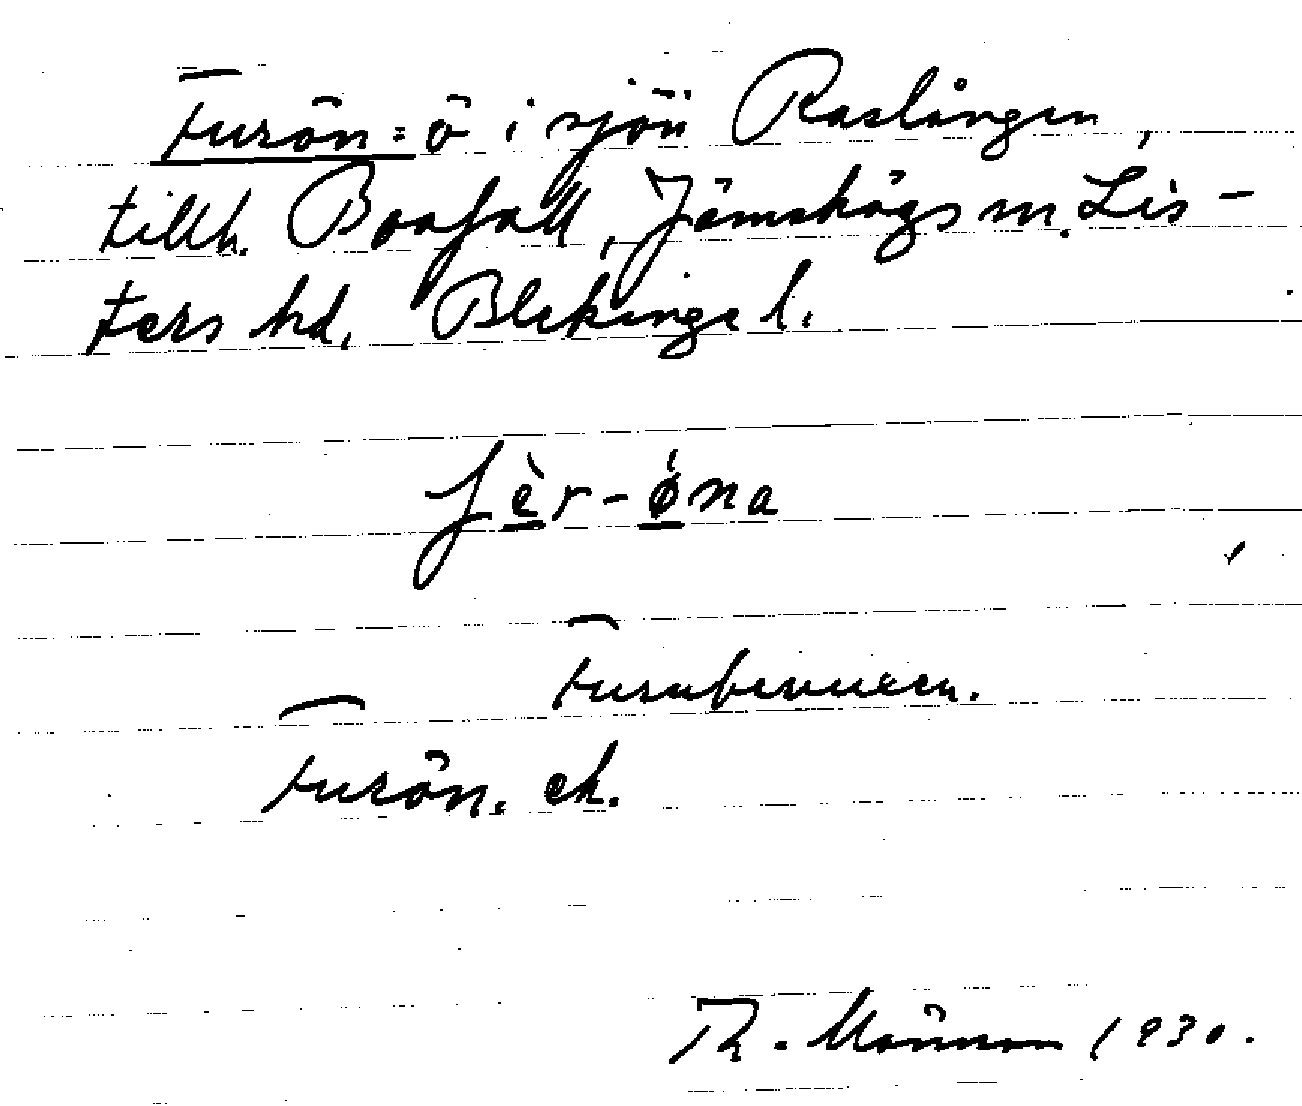 Furön = ö i sjön Raslången,
tillh. Boafall, Jämshögs sn. Lis-
ters hd. Blekinge l.
fèr-øna
Furubevuxen.
Furön. ek.
Th. Månsson 1930.